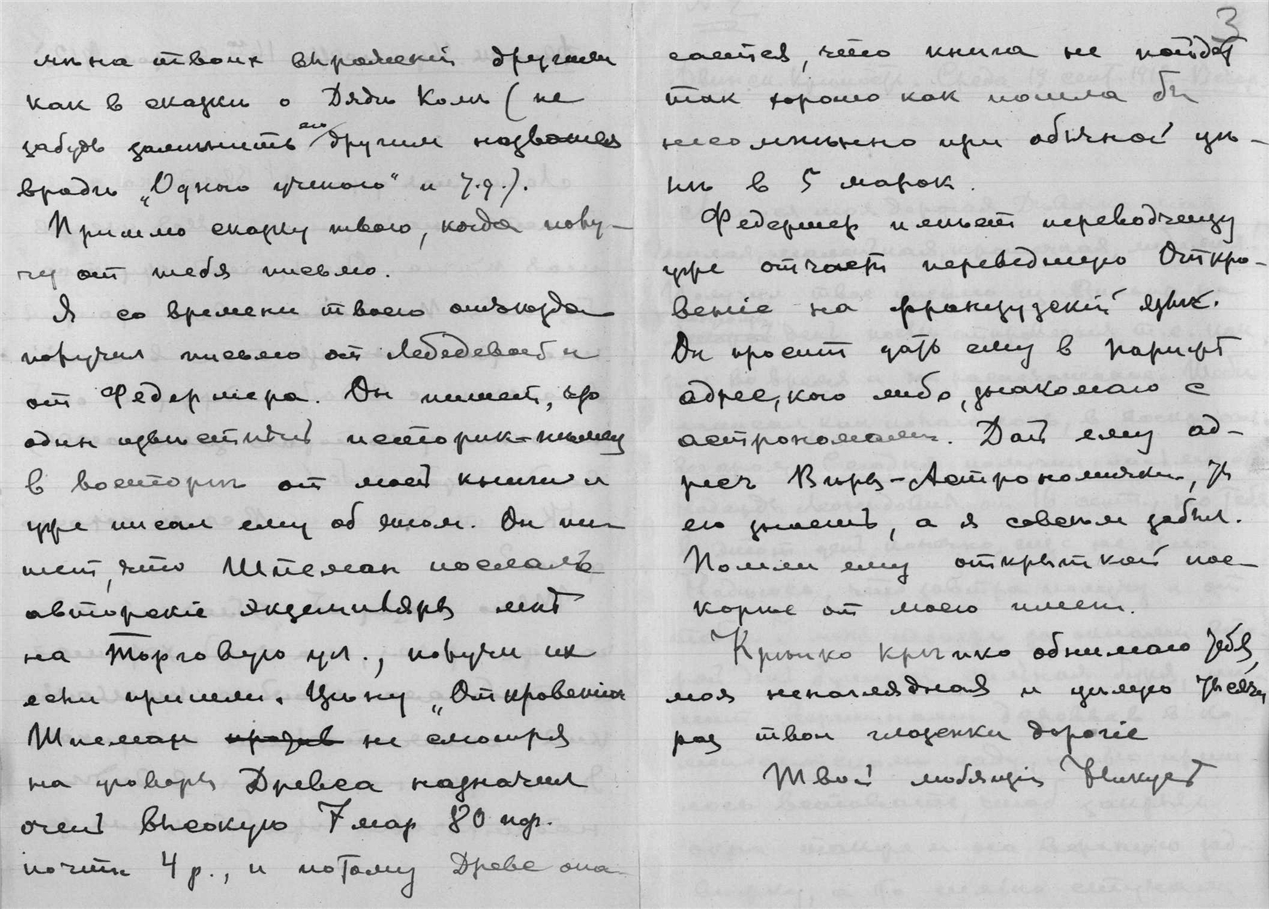 3
мѣна твоих выражений другими
как в сказкѣ о Дядѣ Колѣ (не
забудь замѣнить его другим названием
вродѣ „Одного ученого“ и т.д.).
Пришлю сказку твою, когда полу-
чу от тебя письмо.
Я со времени твоего отъѣзда
получил письмо от Лебедевой и
от Федермера. Он пишет, что
один извѣстный историк-нѣмец
в восторгѣ от моей книги и
уже писал ему об этом. Он пи-
шет, что Шпеман послалъ
авторскіе экземпляры мнѣ
на Торговую ул., получи их
если пришли. Цѣну „Откровенія“
Шпеман не смотря
на уговоры Древса назначил
очень высокую 7 мар 80 пф.
почти 4 р., и потому Древс опа-
сается, что книга не пойдет
так хорошо как пошла бы
несомнѣнно при обычной цѣ-
нѣ в 5 марок.
Федермер имѣет переводчицу
уже отчасти переведшую Откро-
веніе на французскій язык.
Он просит дать ему в Парижѣ
адрес, кого либо, знакомаго с
астрономами. Дай ему ад-
рес Виры-Астрономички, ты
его знаешь, а я совсѣм забыл.
Пошли ему открыткой пос-
корѣе от моего имени.
Крѣпко крѣпко обнимаю тебя,
моя ненаглядная и цѣлую тысячу
раз твои глазенки дорогіе
Твой любящій